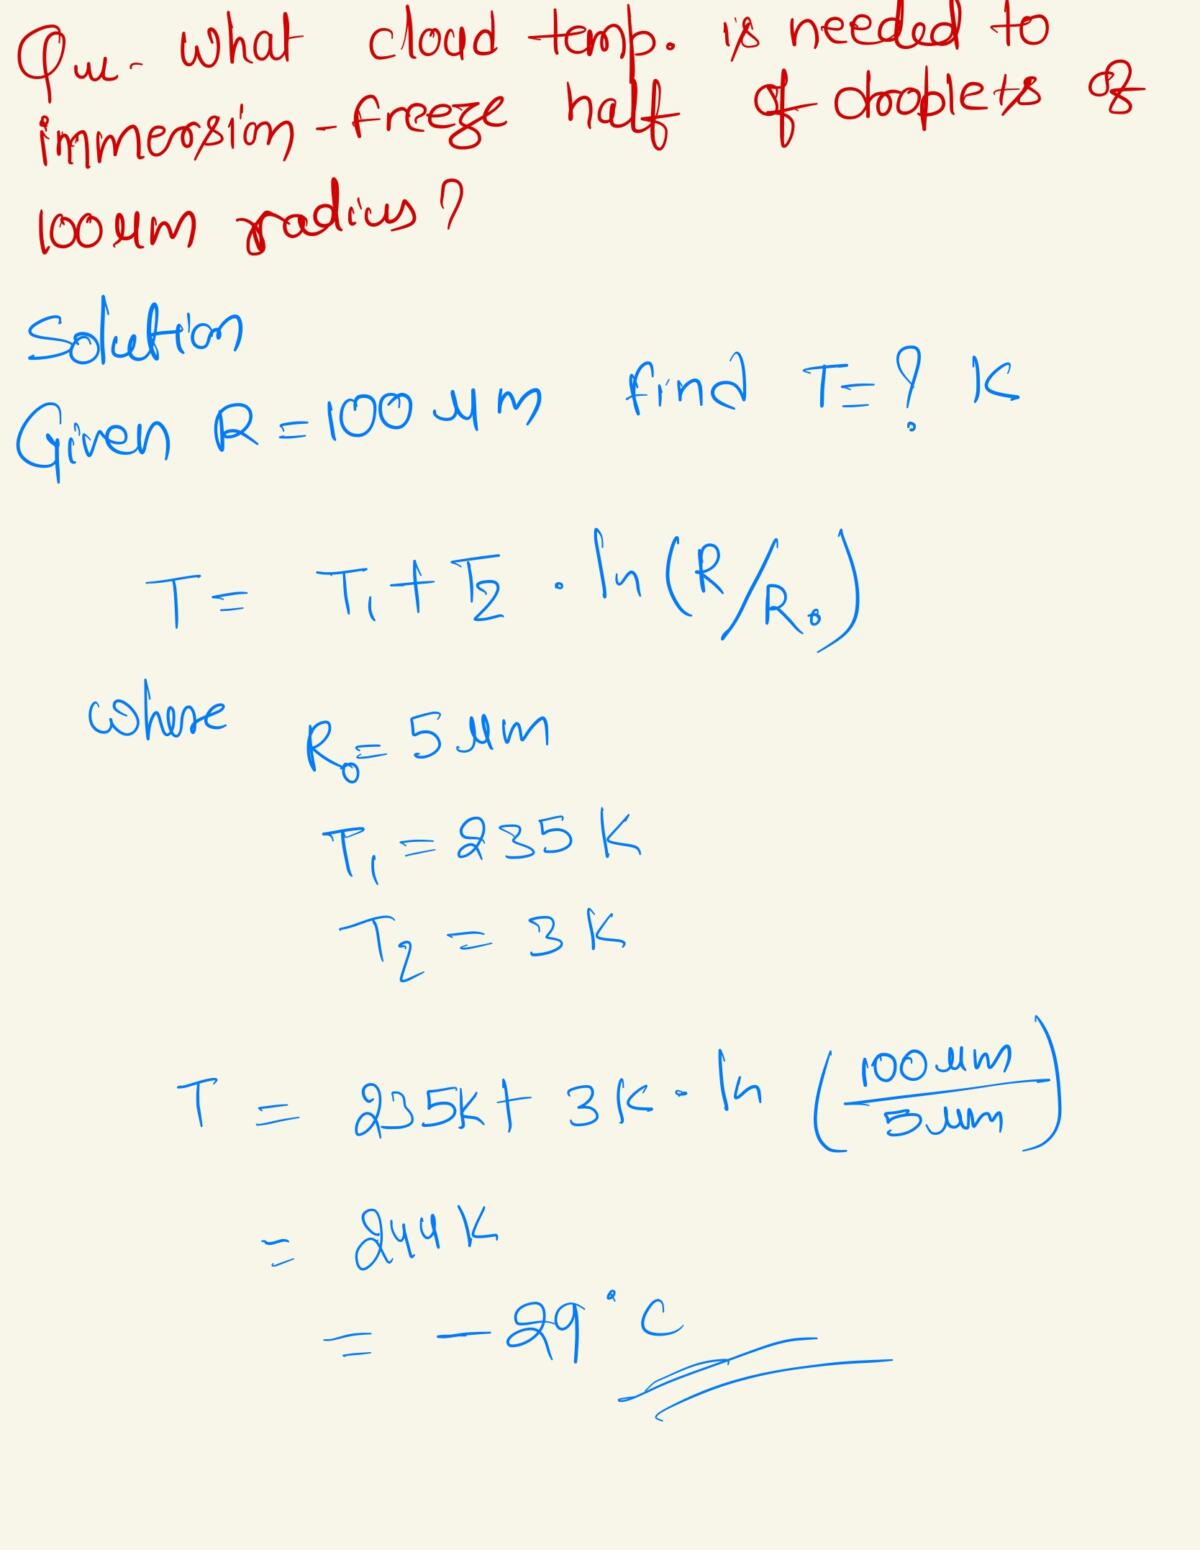 Qu- What cloud temp. is needed to
immersion-freeze half of droplets of
100 μm radius?
Solution
Given R = 100 μm find T= ? K
T = T₁ + T₂ . ln (R/R₀)
where
R₀ = 5 μm
T₁ = 235 K
T₂ = 3 K
T = 235K + 3K . ln (100 μm / 5 μm)
= 244 K
= -29°C